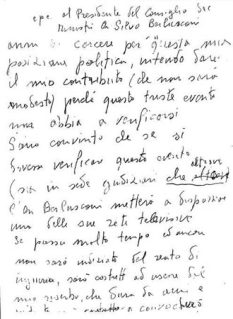 al Presidente del Consiglio dei
Ministri On Silvio Berlusconi
anni di carcere per questa mia
posizione politica, intendo dare
il mio contributo (che non sarà
modesto) perché questo triste evento
non abbia a verificarsi
Sono convinto che se si
dovesse verificare questo evento
(sia in sede giudiziaria che altrove
l'On Berlusconi metterà a disposizione
una delle sue reti televisive
Se passa molto tempo e ancora
non sarò indiziato del reato di
ingiuria, sarò costretto ad uscire dal
mio riserbo, che dura da anni e
a convocherò